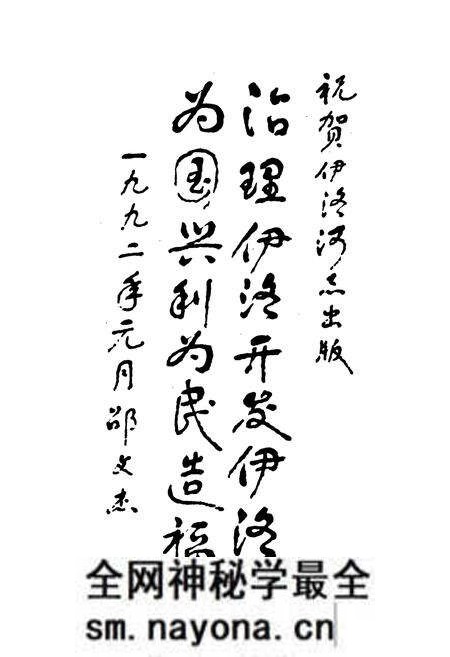 祝贺伊洛河志出版
治理伊洛开发伊洛
为国兴利为民造福
一九九二年元月邵文杰
全网神秘学最全
sm.nayona.cn